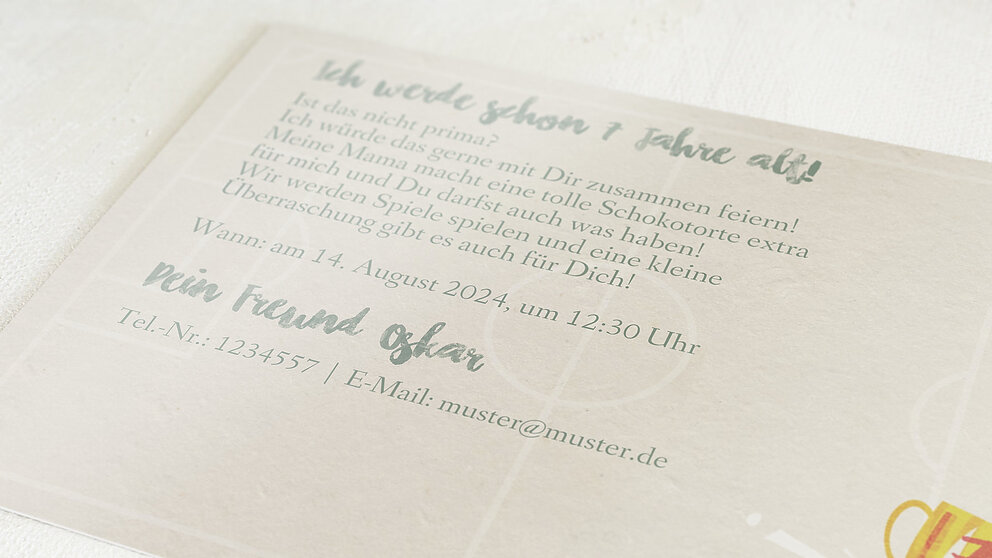 Ich werde schon 7 Jahre alt!
Ist das nicht prima?
Ich würde das gerne mit Dir zusammen feiern!
Meine Mama macht eine tolle Schokotorte extra
für mich und Du darfst auch was haben!
Wir werden Spiele spielen und eine kleine
Überraschung gibt es auch für Dich!
Wann: am 14. August 2024, um 12:30 Uhr
Dein Freund Oskar
Tel.-Nr.: 1234557 | E-Mail: muster@muster.de